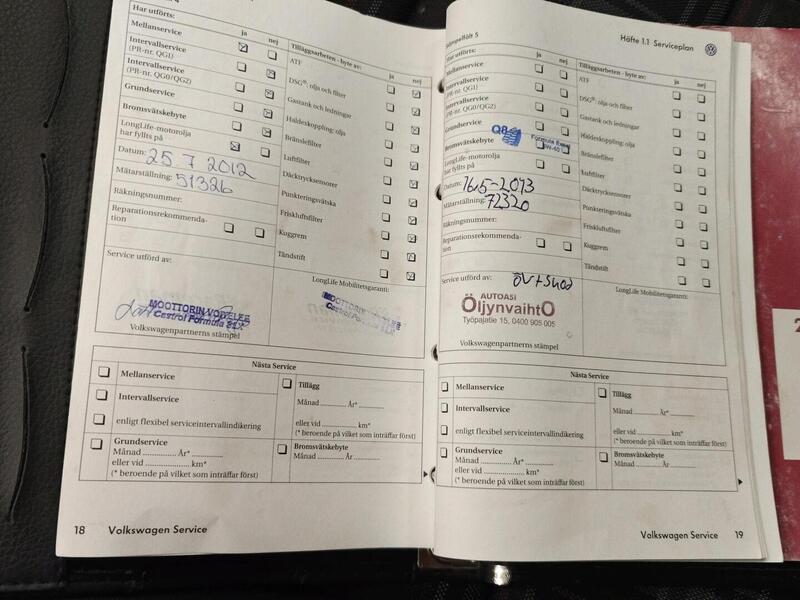 Har utförts:
ja
nej
Mellanservice
Intervallservice
(PR-nr. QG1)
Intervallservice
(PR-nr. QG0/QG2)
Grundservice
Bromsvätskebyte
LongLife-motorolja
har fyllts på
Datum: 25 7 2012
Mätarställning: 51326
Räkningsnummer:
Reparationsrekommenda-
tion
Service utförd av:
MOOTTORIN VOITELEE
Castrol Formula SLX
Volkswagenpartnerns stämpel
Tilläggsarbeten - byte av:
ja
nej
ATF
DSG®: olja och filter
Gastank och ledningar
Haldexkoppling: olja
Bränslefilter
Luftfilter
Däcktrycksensorer
Punkteringsvätska
Friskluftsfilter
Kuggrem
Tändstift
LongLife Mobilitetsgaranti:
MOOTTORIN VOITELEE
Castrol Formula SLX
Nästa Service
Mellanservice
Intervallservice
enligt flexibel serviceintervallindikering
Grundservice
Månad ................ År* ............
eller vid .................... km*
(* beroende på vilket som inträffar först)
Tillägg
Månad ................ År* ............
eller vid .................... km*
(* beroende på vilket som inträffar först)
Bromsvätskebyte
Månad ............ År ............
18 Volkswagen Service
Häfte 1.1 Serviceplan
Stämpelfält 5
Har utförts:
ja
nej
Mellanservice
Intervallservice
(PR-nr. QG1)
Intervallservice
(PR-nr. QG0/QG2)
Grundservice
Bromsvätskebyte
Q8
LongLife-motorolja
har fyllts på
Datum:
Mätarställning: 72320
Räkningsnummer:
Reparationsrekommenda-
tion
Service utförd av:
AUTOASI
ÖljynvaihtO
Työpajatie 15, 0400 905 005
Volkswagenpartnerns stämpel
Tilläggsarbeten - byte av:
ja
nej
ATF
DSG®: olja och filter
Gastank och ledningar
Haldexkoppling: olja
Bränslefilter
Luftfilter
Däcktrycksensorer
Punkteringsvätska
Friskluftsfilter
Kuggrem
Tändstift
LongLife Mobilitetsgaranti:
Nästa Service
Mellanservice
Intervallservice
enligt flexibel serviceintervallindikering
Grundservice
Månad ................ År* ............
eller vid .................... km*
(* beroende på vilket som inträffar först)
Tillägg
Månad ................ År* ............
eller vid .................... km*
(* beroende på vilket som inträffar först)
Bromsvätskebyte
Månad ............ År ............
Volkswagen Service 19